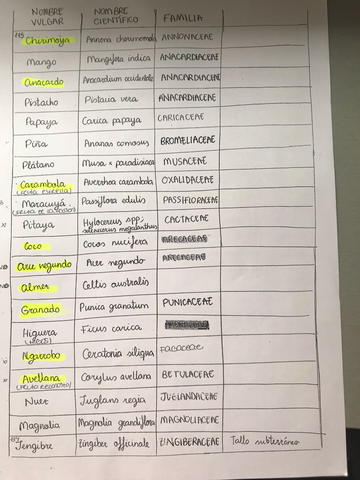 NOMBRE VULGAR NOMBRE CIENTÍFICO FAMILIA
Chirimoya Annona cherimomola ANNONACEAE
Mango Mangifera indica ANACARDIACEAE
Anacardo Anacardium occidentale ANACARDIACEAE
Pistacho Pistacia vera ANACARDIACEAE
Papaya Carica papaya CARICACEAE
Piña Ananas comosus BROMELIACEAE
Plátano Musa x paradisiaca MUSACEAE
Carambola Averrhoa carambola OXALIDACEAE
(FRUTA ESTRELLA)
Maracuyá Passiflora edulis PASSIFLORACEAE
Pitaya Hylocereus spp; CACTACEAE
selenicereus megalanthus
Coco Cocos nucifera ARECACEAE
Arce negundo Acer negundo
Almez Celtis australis
Granado Punica granatum PUNICACEAE
Higuera Ficus carica
(HIGOS)
Algarrobo Ceratonia siliqua FABACEAE
Avellana Corylus avellana BETULACEAE
Nuez Juglans regia JUGLANDACEAE
Magnolia Magnolia grandiflora MAGNOLIACEAE
Jengibre Zingiber officinale ZINGIBERACEAE Tallo subterráneo